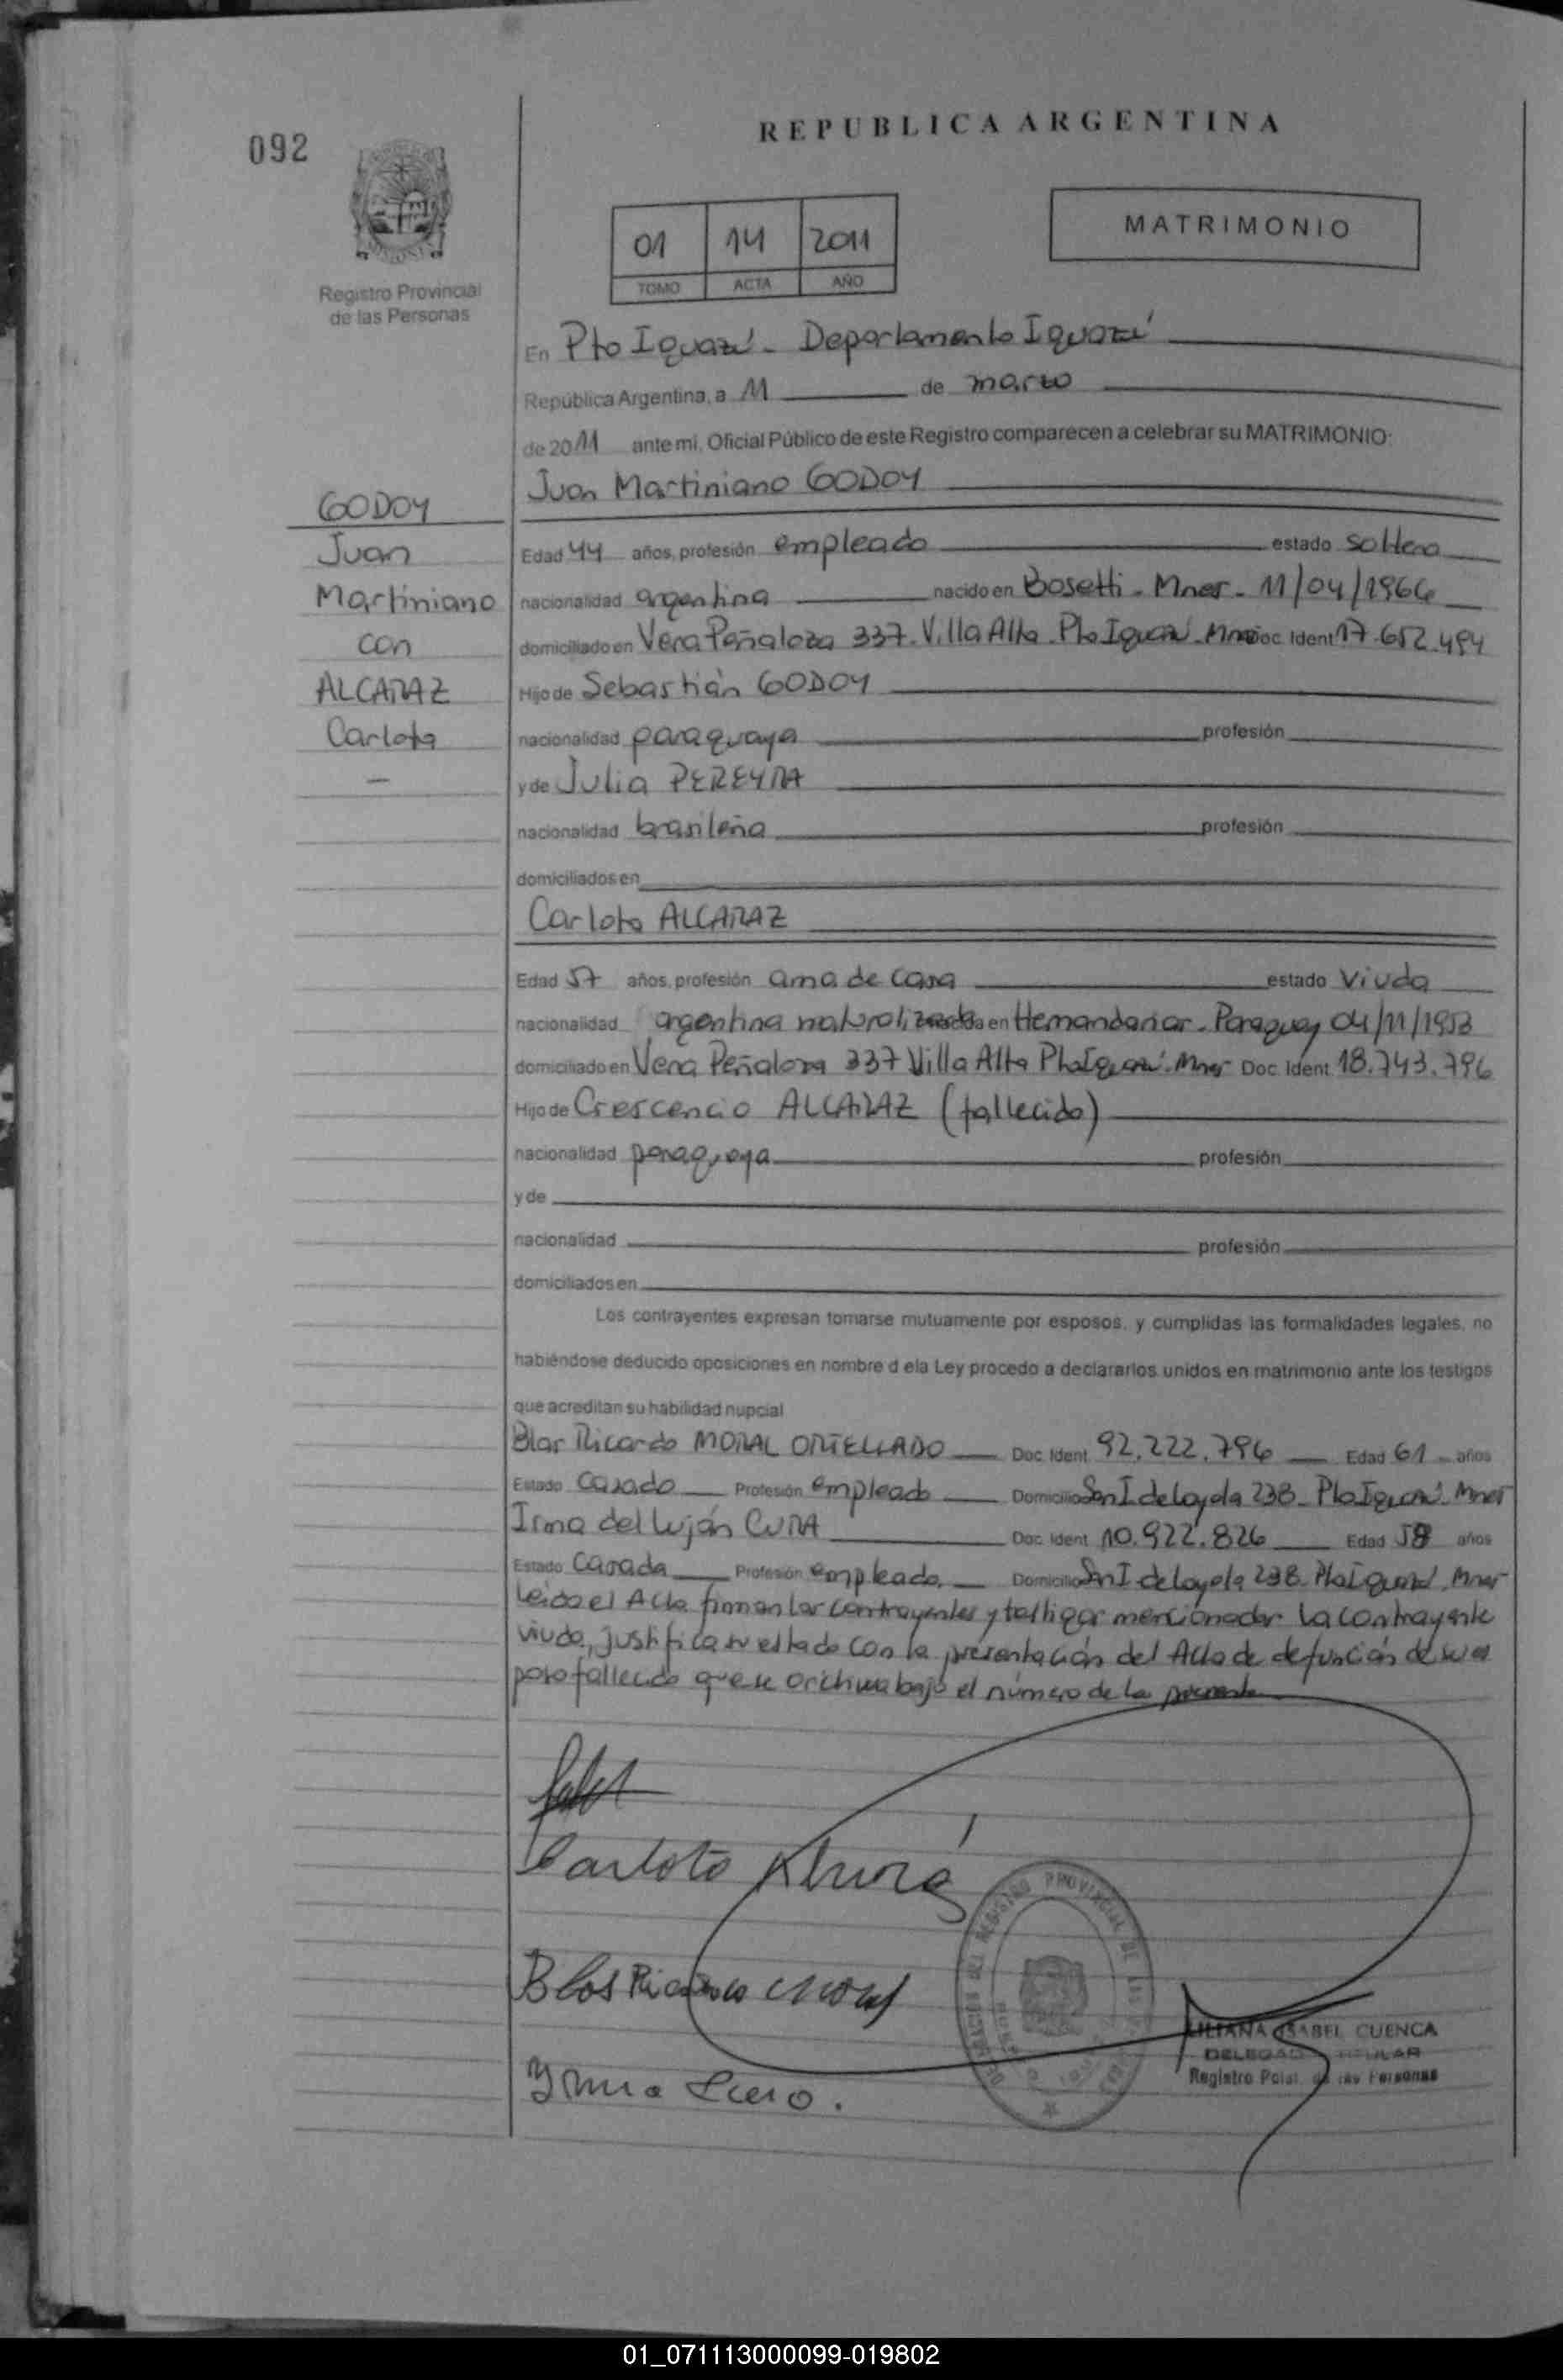 092
REPUBLICA ARGENTINA
01 14 2011
TOMO ACTA AÑO
MATRIMONIO
Registro Provincial
de las Personas
En Pto Iguazú - Departamento Iguazú
República Argentina, a 11 de marzo
de 2011 ante mi, Oficial Público de este Registro comparecen a celebrar su MATRIMONIO:
Juan Martiniano GODOY
GODOY
Juan
Martiniano
con
ALCARAZ
Carlota
—
Edad 44 años, profesión empleado estado soltero
nacionalidad argentina nacido en Bosetti - Mnes - 11/04/1966
domiciliado en Vera Peñaloza 337 - Villa Alta - Pto Iguazú - Mnes Doc. Ident 17.652.494
Hijo de Sebastián GODOY
nacionalidad paraguaya profesión
y de Julia PEREYRA
nacionalidad brasileña profesión
domiciliados en
Carlota ALCARAZ
Edad 57 años, profesión ama de casa estado Viuda
nacionalidad argentina naturalizada en Hernandarias - Paraguay 04/11/1953
domiciliado en Vera Peñaloza 337 Villa Alta Pto Iguazú - Mnes Doc. Ident 18.743.796
Hijo de Crescencio ALCARAZ (fallecido)
nacionalidad paraguaya profesión
y de
nacionalidad profesión
domiciliados en
Los contrayentes expresan tomarse mutuamente por esposos, y cumplidas las formalidades legales, no
habiéndose deducido oposiciones en nombre d ela Ley procedo a declararlos unidos en matrimonio ante los testigos
que acreditan su habilidad nupcial
Blas Ricardo MORAL ORTELLADO Doc. Ident 92.222.796 Edad 61 años
Estado Casado Profesión empleado Domicilio San I de Loyola 238 - Pto Iguazú - Mnes
Irma del Luján CURA Doc. Ident 10.922.826 Edad 58 años
Estado Casada Profesión empleada Domicilio San I de Loyola 238 - Pto Iguazú - Mnes
Leído el Acta firman los contrayentes y testigos mencionados. La contrayente
viuda, justifica su estado con la presentación del Acta de defunción de su es
poso fallecido que se archiva bajo el número de la presente
Carlota
Blas Ricardo Moral
LILIANA ISABEL CUENCA
DELEGADA TITULAR
Registro Pcial. de las Personas
01_071113000099-019802